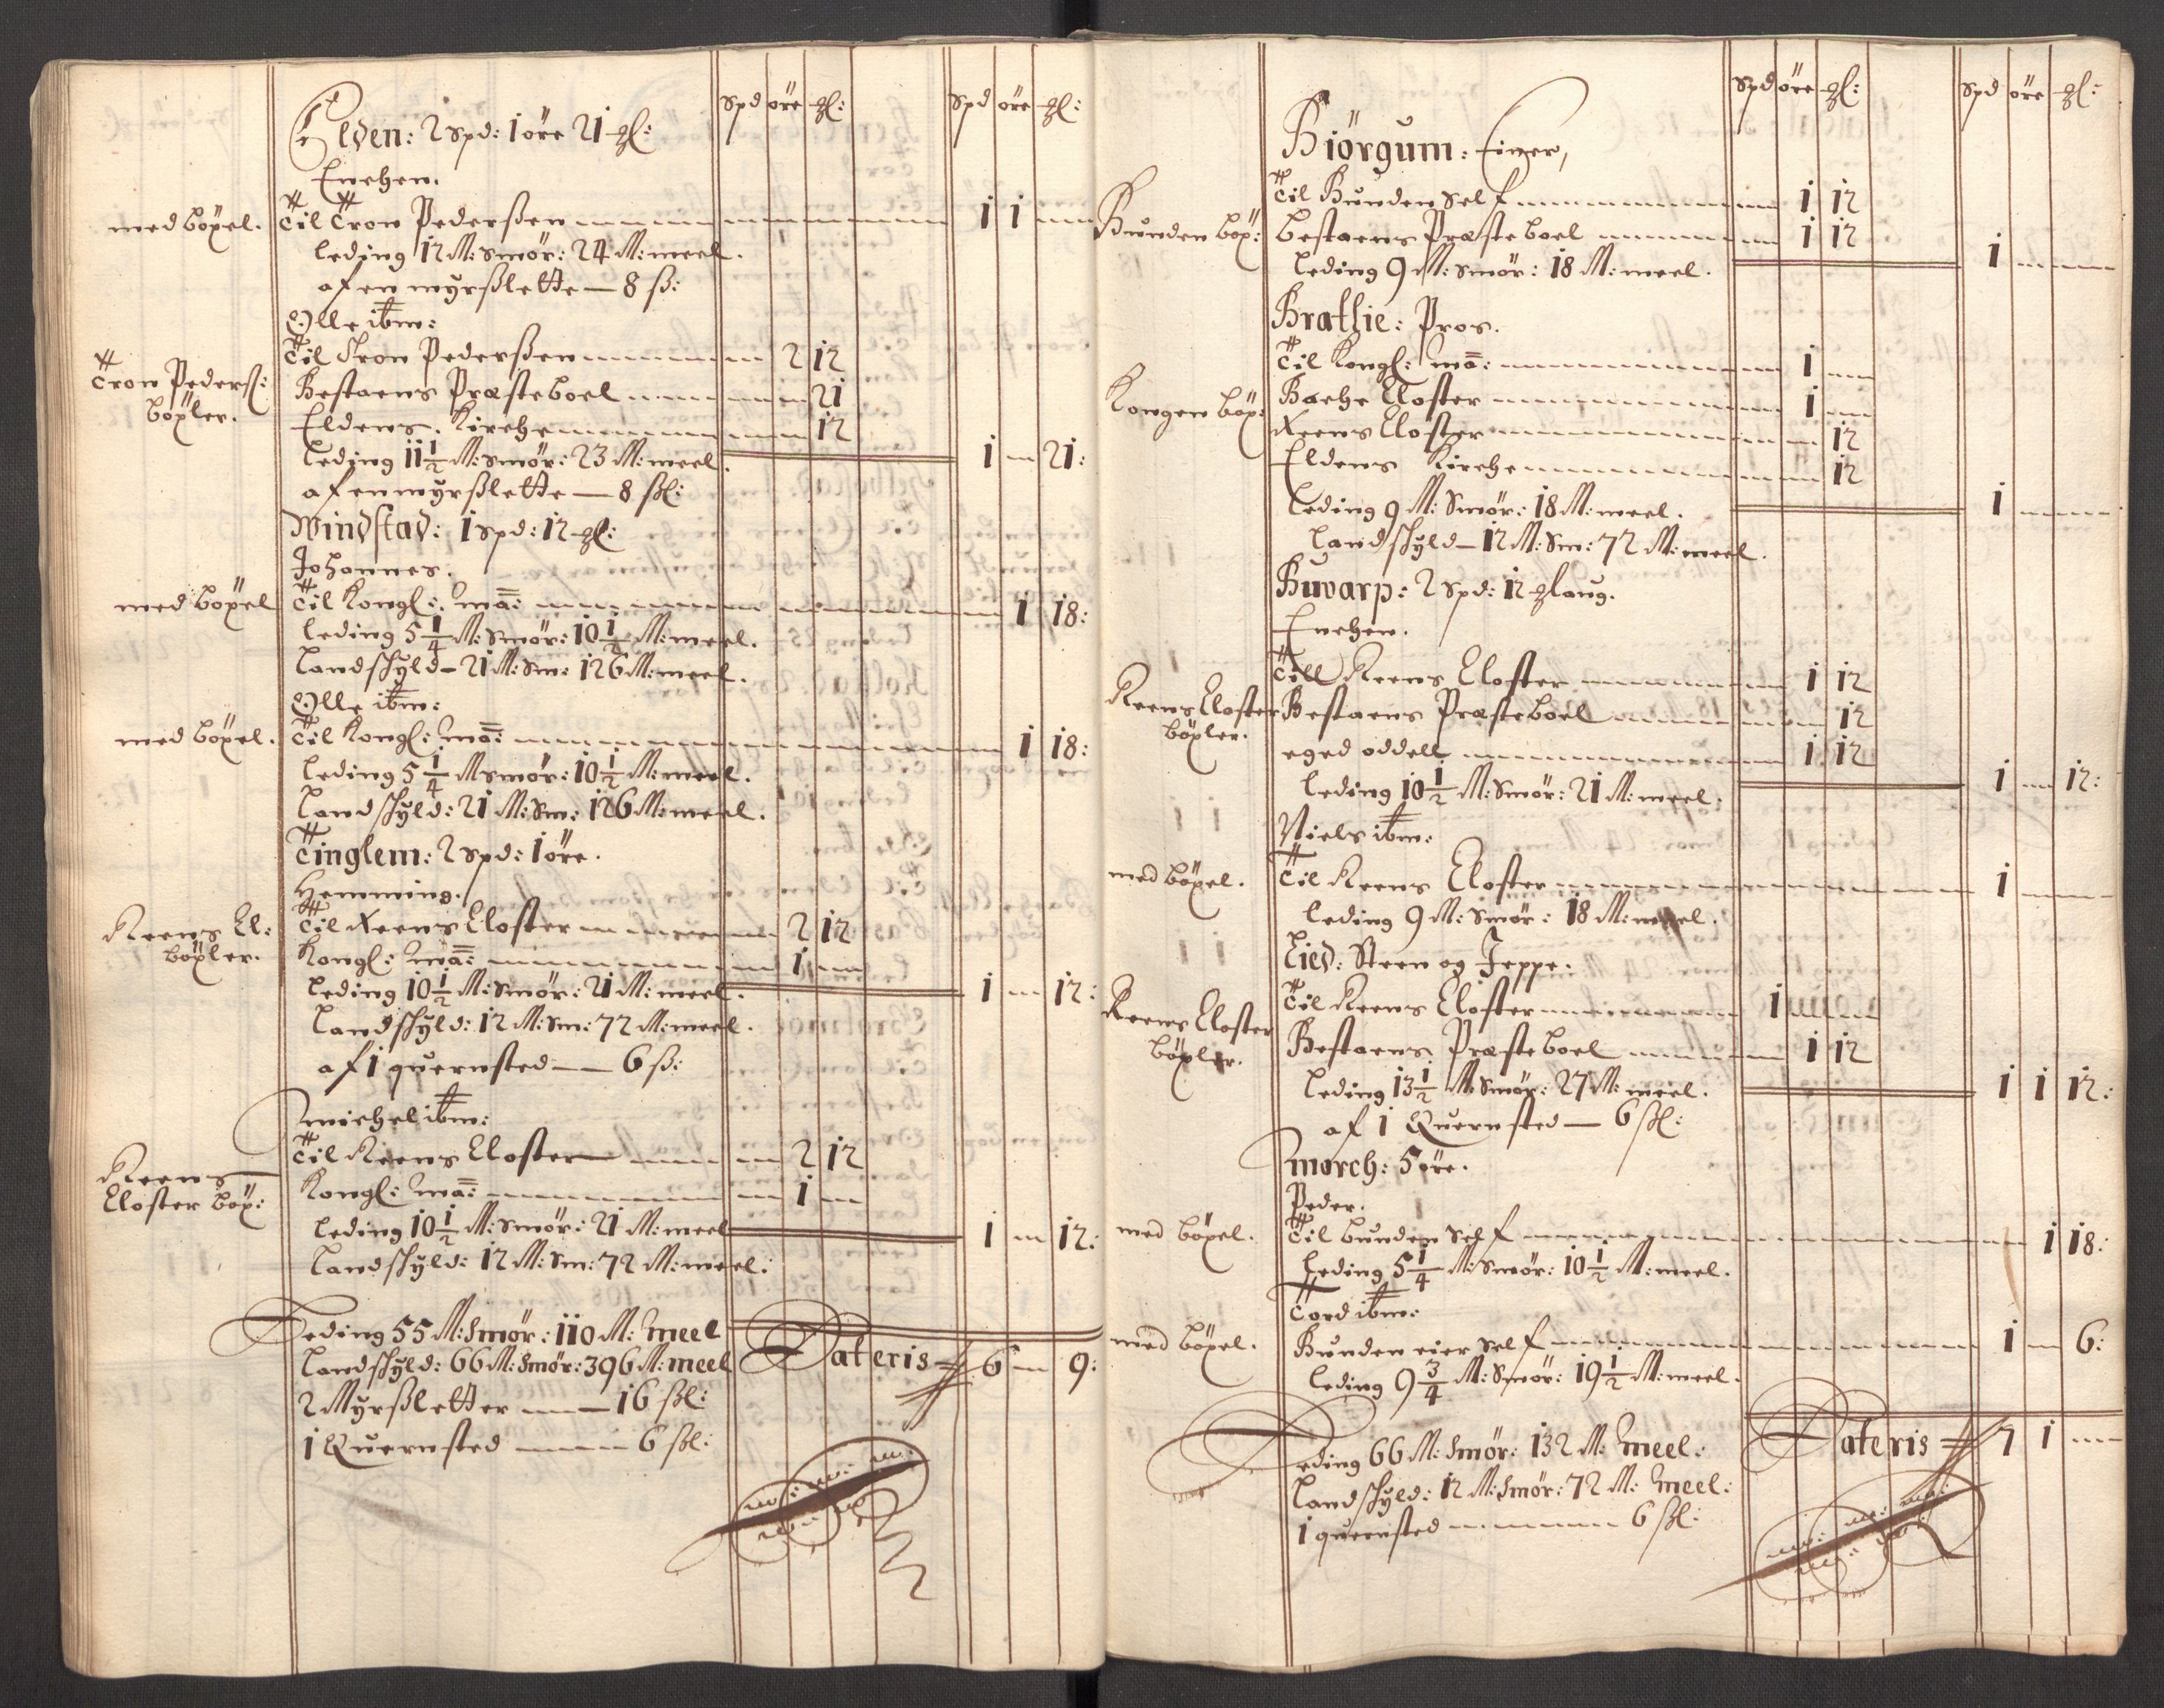 Spd öre gl: Spd öre gl:
Elden: 2 spd: 1 öre 21 gl:
Enchen.
med böxel. Til Tron Pederßen 1 1 —
leding 12 M: smör: 24 M: meel.
af en myrßlette — 8 ß:
Olle ibm:
Til Tron Pederßen 2 12
Tron Pederß: böxler. Bestaens Præsteboel 21
Eldens Kirche 12
leding 11 1/2 M: smör: 23 M: meel. 1 — 21:
af en myrßlette — 8 ßl:
Windstad: 1 spd: 12 gl:
Johannes.
med böxel Til Kongl: Ma: 1 18:
leding 5 1/4 M: smör: 10 1/2 M: meel.
Landschyld — 21 M: Sm: 126 M: meel.
Olle ibm:
med böxel. Til Kongl: Ma: 1 18:
leding 5 1/4 M smör: 10 1/2 M: meel.
Landschyld: 21 M: Sm: 126 M: meel.
Tinglem: 2 spd: 1 öre.
Hemming.
Reens Cl: böxler. Til Reens Closter 2 12
Kongl: Ma: 1 —
leding 10 1/2 M: smör: 21 M: meel. 1 — 12:
Landschyld: 12 M: Sm: 72 M: meel.
af 1 quernsted — 6 ß:
Michel ibm:
Til Reens Closter 2 12
Reens Closter böx: Kongl: Ma: 1 —
leding 10 1/2 M: smör: 21 M: meel 1 — 12:
Landschyld: 12 M: Sm: 72 M: meel:
Leding 55 M: Smör: 110 M: Meel
Landschyld: 66 M: Smör: 396 M: meel Lateris 6 — 9:
2 Myrßletter — 16 ßl:
1 Quernsted — 6 ßl:
Spd öre gl: Spd öre gl:
Biörgum: Einer,
Til Bunden self 1 12
Bunden böx: Bestaens Præsteboel 1 12
Leding 9 M: smör: 18 M: meel. 1 —
Bratlie: Pros.
Til Kongl: Ma: 1 —
Kongen böx: Bache Closter 1 —
Reens Closter 12
Eldens Kirche 12
Leding 9 M: Smör: 18 M: meel. 1 —
Landschyld — 12 M: Sm: 72 M: meel.
Buvarp: 2 Spd: 12 gl aug.
Enchen.
Till Reens Closter 1 12
Reens Closter böxler. Bestaens Præsteboel 12
eged oddell 1 12
leding 10 1/2 M: Smör: 21 M: meel: 1 — 12:
Niels ibm:
med böxel. Til Reens Closter 1 —
leding 9 M: Smör: 18 M: meel.
Lied: Steen og Jeppe:
Reens Closter böxler. Til Reens Closter 1 —
Bestaens Præsteboel 1 12
leding 13 1/2 M: Smör: 27 M: meel. 1 1 12:
af 1 Quernsted — 6 ßl:
Morch: 5 öre.
Peder.
med böxel. Til bunden self 1 18:
leding 5 1/4 M: Smör: 10 1/2 M: meel.
Tord ibm:
med böxel. Bunden eier self 1 — 6:
leding 9 3/4 M: Smör: 19 1/2 M: meel.
Leding 66 M: Smör: 132 M: Meel: Lateris 7 1 —
Landschyld: 12 M: Smör: 72 M: Meel:
1 quernsted — 6 ßl: